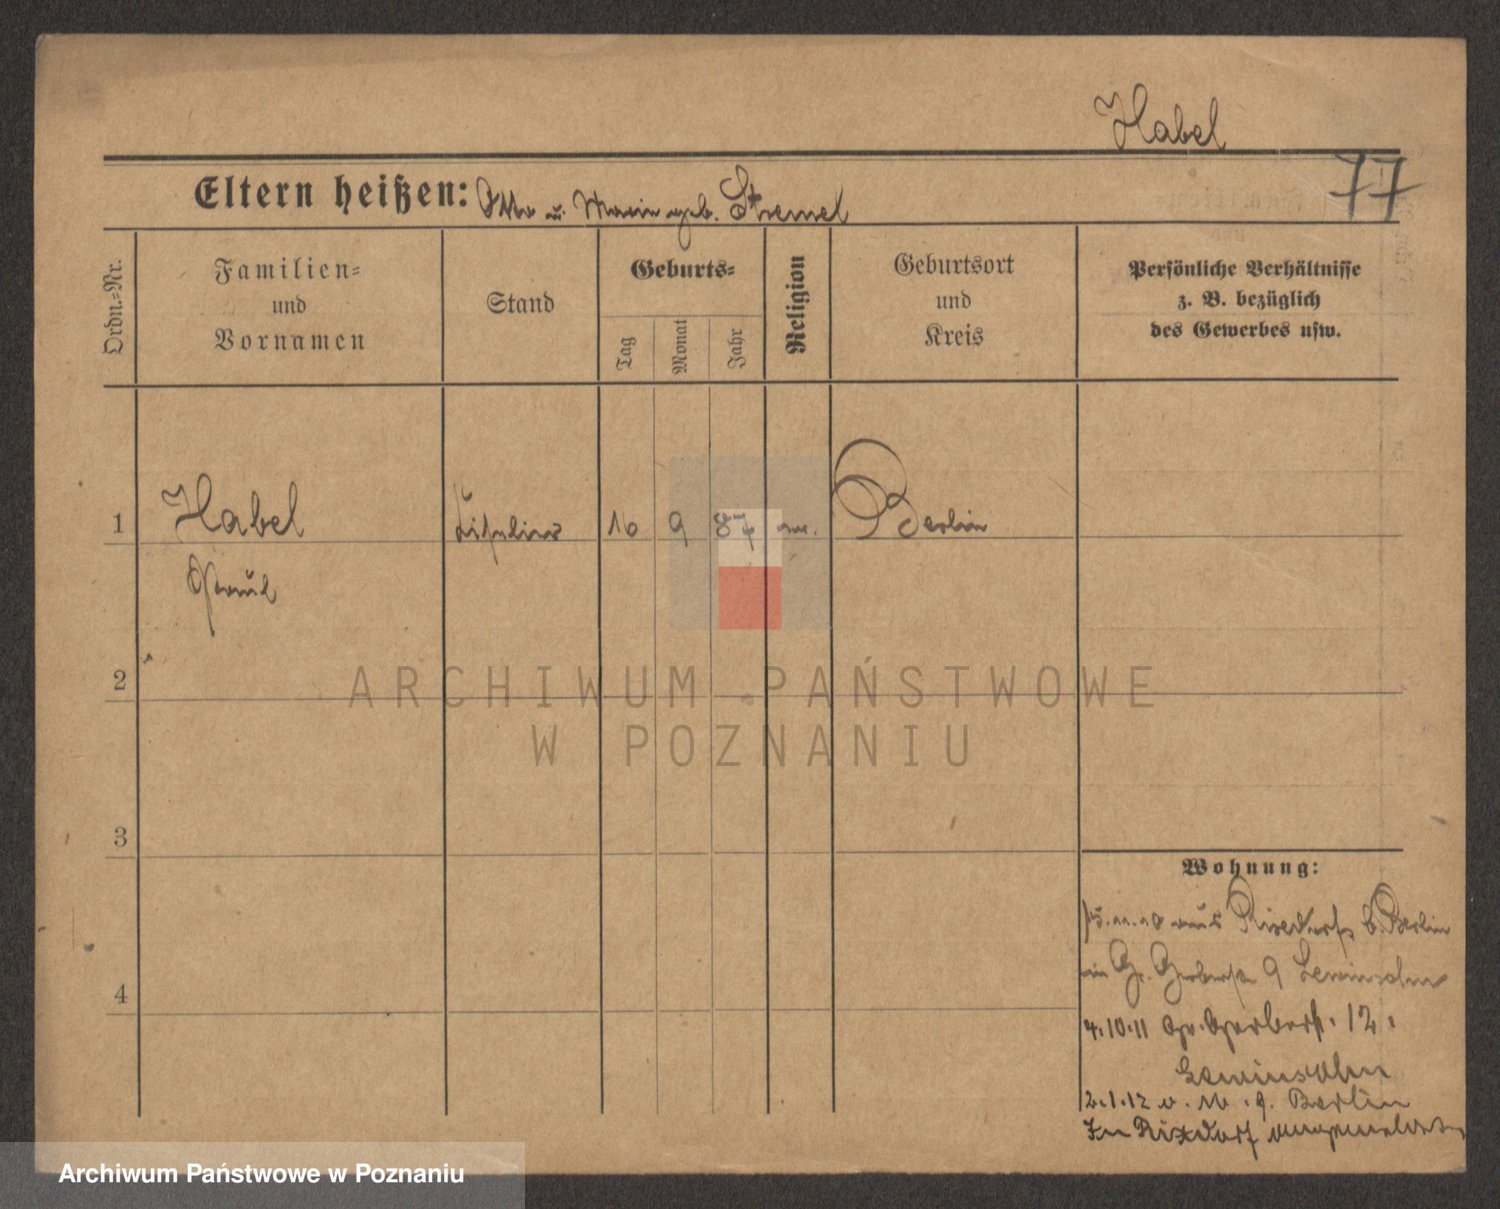 Habel
77
Eltern heißen: Otto u. Marie geb. Stremel
Ordn.-Nr.
Familien-
und
Vornamen
Stand
Geburts-
Tag
Monat
Jahr
Religion
Geburtsort
und
Kreis
Persönliche Verhältnisse
z. B. bezüglich
des Gewerbes usw.
1 Habel 16 9 87 Berlin
Paul
2
ARCHIWUM PAŃSTWOWE
W POZNANIU
3
Wohnung:
aus Rixdorf b. Berlin
Gr. Gerberstr. 9 Lewinsohn
4
4.10.11 Gr. Gerberstr. 12.
Lewinsohn
2.1.12 Berlin
In Rixdorf angemeldet
Archiwum Państwowe w Poznaniu